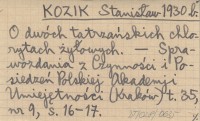 KOZIK Stanisław 1930 b.
O dwóch tatrzańskich chlo-
rytach żyłowych. — Spra-
wozdania z Czynności i Po-
siedzeń Polskiej Akademji
Umiejętności (Kraków) t. 35,
nr 9, s. 16-17.